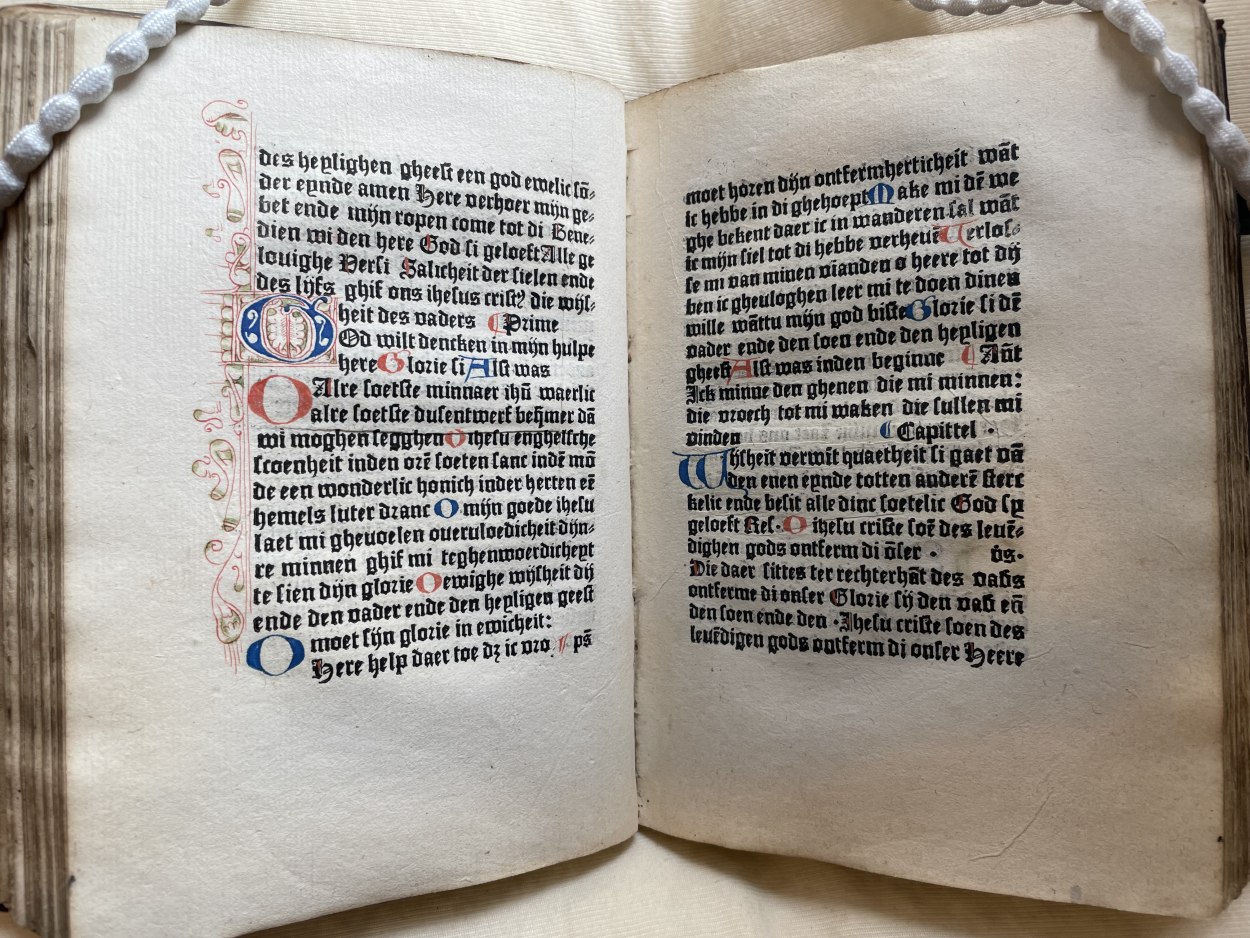 des heylighen gheest een god ewelic sō-
der eynde amen Here verhoer mijn ge-
bet ende mijn ropen come tot di Bene-
dien wi den here God si geloeft Alle ge
louighe Versi Salicheit der sielen ende
des lijfs ghif ons ihesus crist⁹ die wijs-
heit des vaders ⸿Prime
GOd wilt dencken in mijn hulpe
here Glorie si Alst was
O Alre soetste minnaer ihū waerlic
alre soetste dusentwerf behmer dā
wi moghen segghen O ihesu enghelsche
scoenheit inden orē soeten sanc indē mō
de een wonderlic honich inder herten eē
hemels luter dranc O mijn goede ihesu
laet mi gheuoelen oueruloedicheit dijn-
re minnen ghif mi teghenwoerdicheyt
te sien dijn glorie O ewighe wijsheit dij
ende den vader ende den heyligen geest
O moet sijn glorie in ewicheit:
Here help daer toe dz ic vro ps̄
moet horen dijn ontfermherticheit wāt
ic hebbe in di ghehoept Make mi dē we
ghe bekent daer ic in wanderen sal wāt
ic mijn siel tot di hebbe verheuē Verlos-
se mi van minen viandē o heere tot dij
ben ic gheuloghen leer mi te doen dinen
wille wāttu mijn god biste Glorie si dē
vader ende den soen ende den heyligen
gheest Alst was inden beginne ⸿Ant̄
Ick minne den ghenen die mi minnen:
die vroech tot mi waken die sullen mi
vinden ⸿Capittel ·
Wijsheit verwīt quaetheit si gaet vā
den enen eynde totten anderē sterc
kelic ende besit alle dinc soetelic God sy
geloeft Res· O ihesu criste soē des leuē-
dighen gods ontferm di ōser · v̄s·
Die daer sittes ter rechterhāt des vads
ontferme di onser Glorie sij den vad eñ
den soen ende den · Ihesu criste soen des
leuēdigen gods ontferm di onser Heere